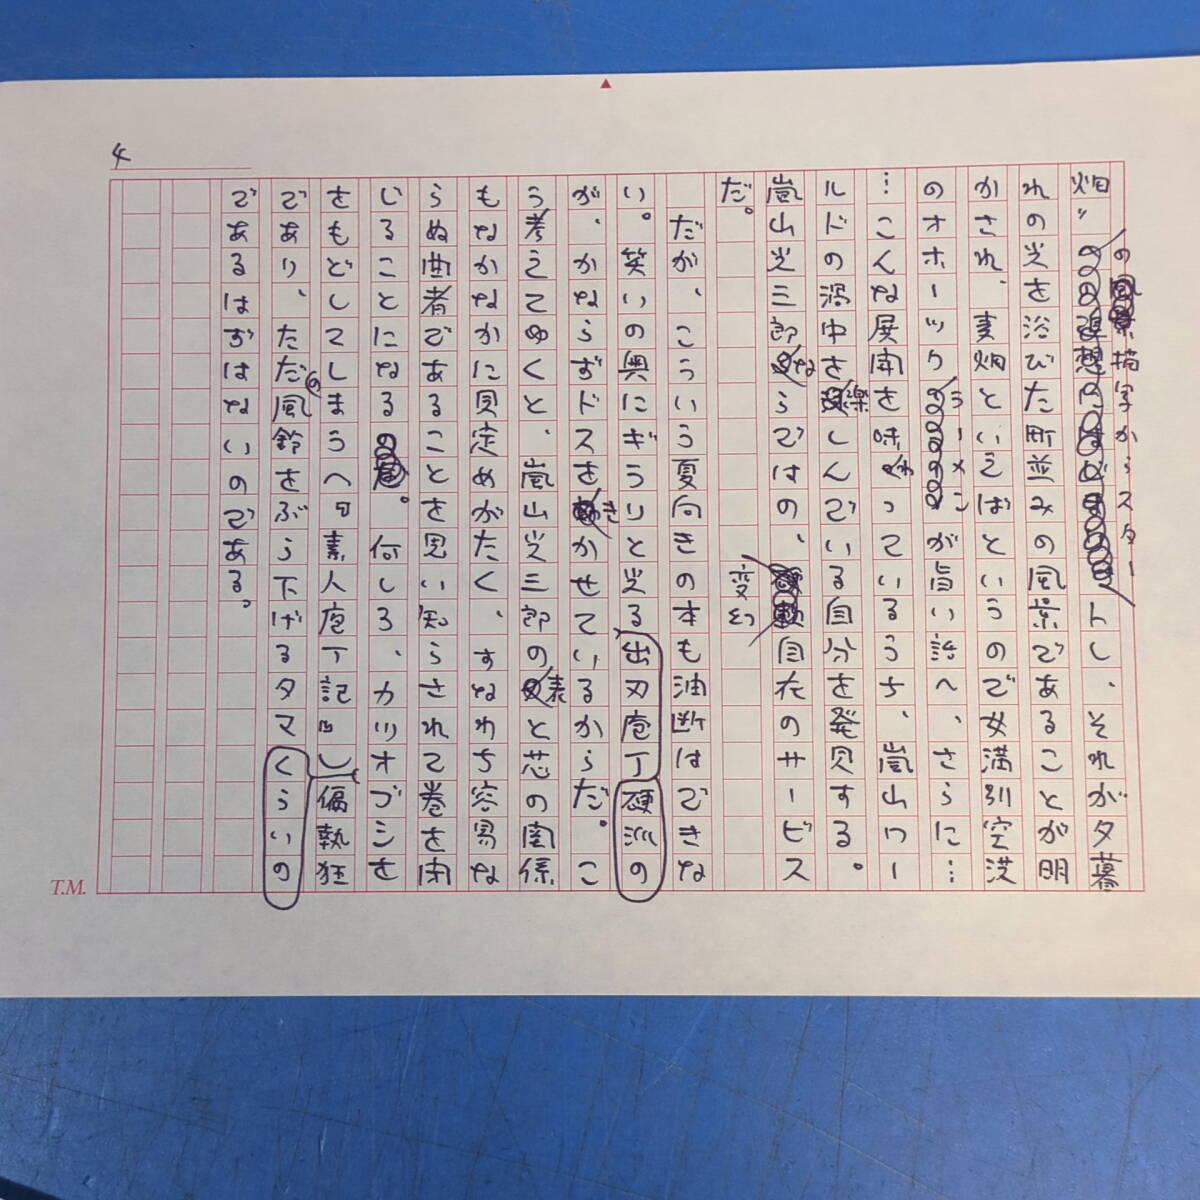 4
畑〟の風景描写からスタートし、それが夕暮
れの光を浴びた町並みの風景であることが明
かされ、麦畑といえばというので女満別空港
のオホーツクラーメンが旨い話へ、さらに…
…こんな展開を味わっているうち、嵐山ワー
ルドの渦中を楽しんでいる自分を発見する。
嵐山光三郎ならではの、変幻自在のサービス
だ。
だが、こういう夏向きの本も油断はできな
い。笑いの奥にギラリと光る出刃庖丁
硬派の
が、かならずドスをきかせているからだ。こ
う考えてゆくと、嵐山光三郎の表と芯の関係
もなかなかに見定めがたく、すなわち容易な
らぬ曲者であることを思い知らされて巻を閉
じることになる。何しろ、カツオブシを
をもどしてしまうへ『素人庖丁記』し偏執狂
であり、ただの風鈴をぶら下げるタマくらいの
であるはずはないのである。
T.M.